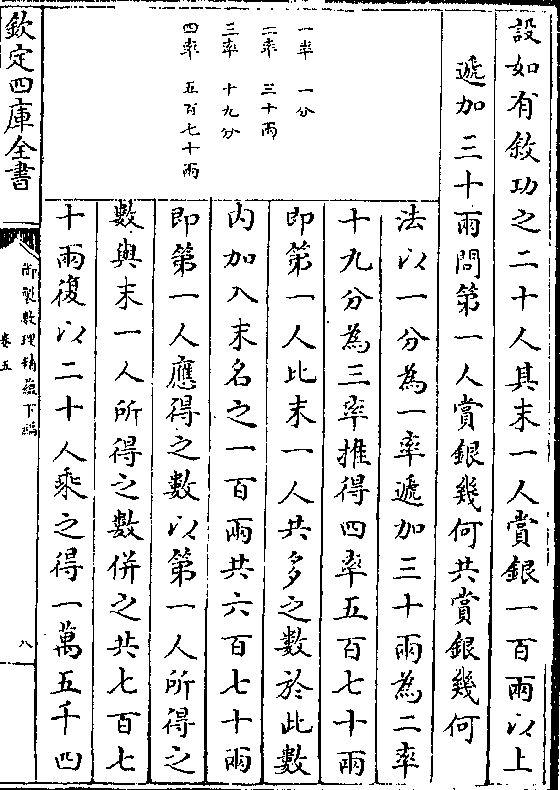 設如有敘功之二十人其末一人賞銀一百兩以上
遞加三十兩問第一人賞銀幾何共賞銀幾何
一率 一分
二率 三十兩
三率 十九分
四率 五百七十兩
法以一分為一率遞加三十兩為二率
十九分為三率推得四率五百七十兩
即第一人比末一人共多之數於此數
内加入末名之一百兩共六百七十兩
即第一人應得之數以第一人所得之
數與末一人所得之數併之共七百七
十兩復以二十人乘之得一萬五千四
欽定四庫全書
御製數理精蘊下編
卷五
八